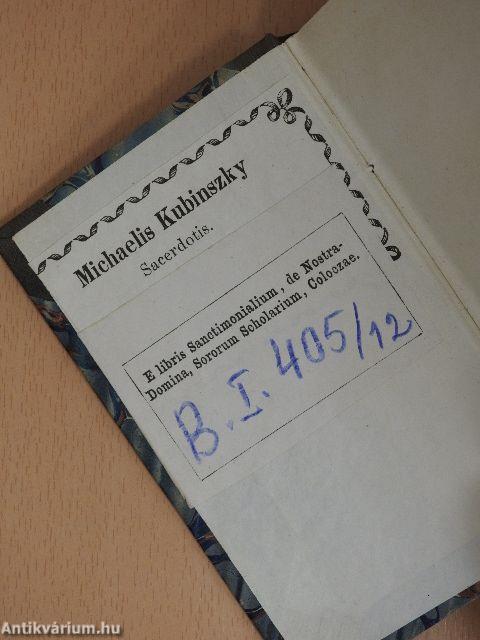 Michaelis Kubinszky
Sacerdotis.
E libris Sanctimonialium, de Nostra-
Domina, Sororum Scholarium, Coloczae.
B. I. 405/12
Antikvárium.hu